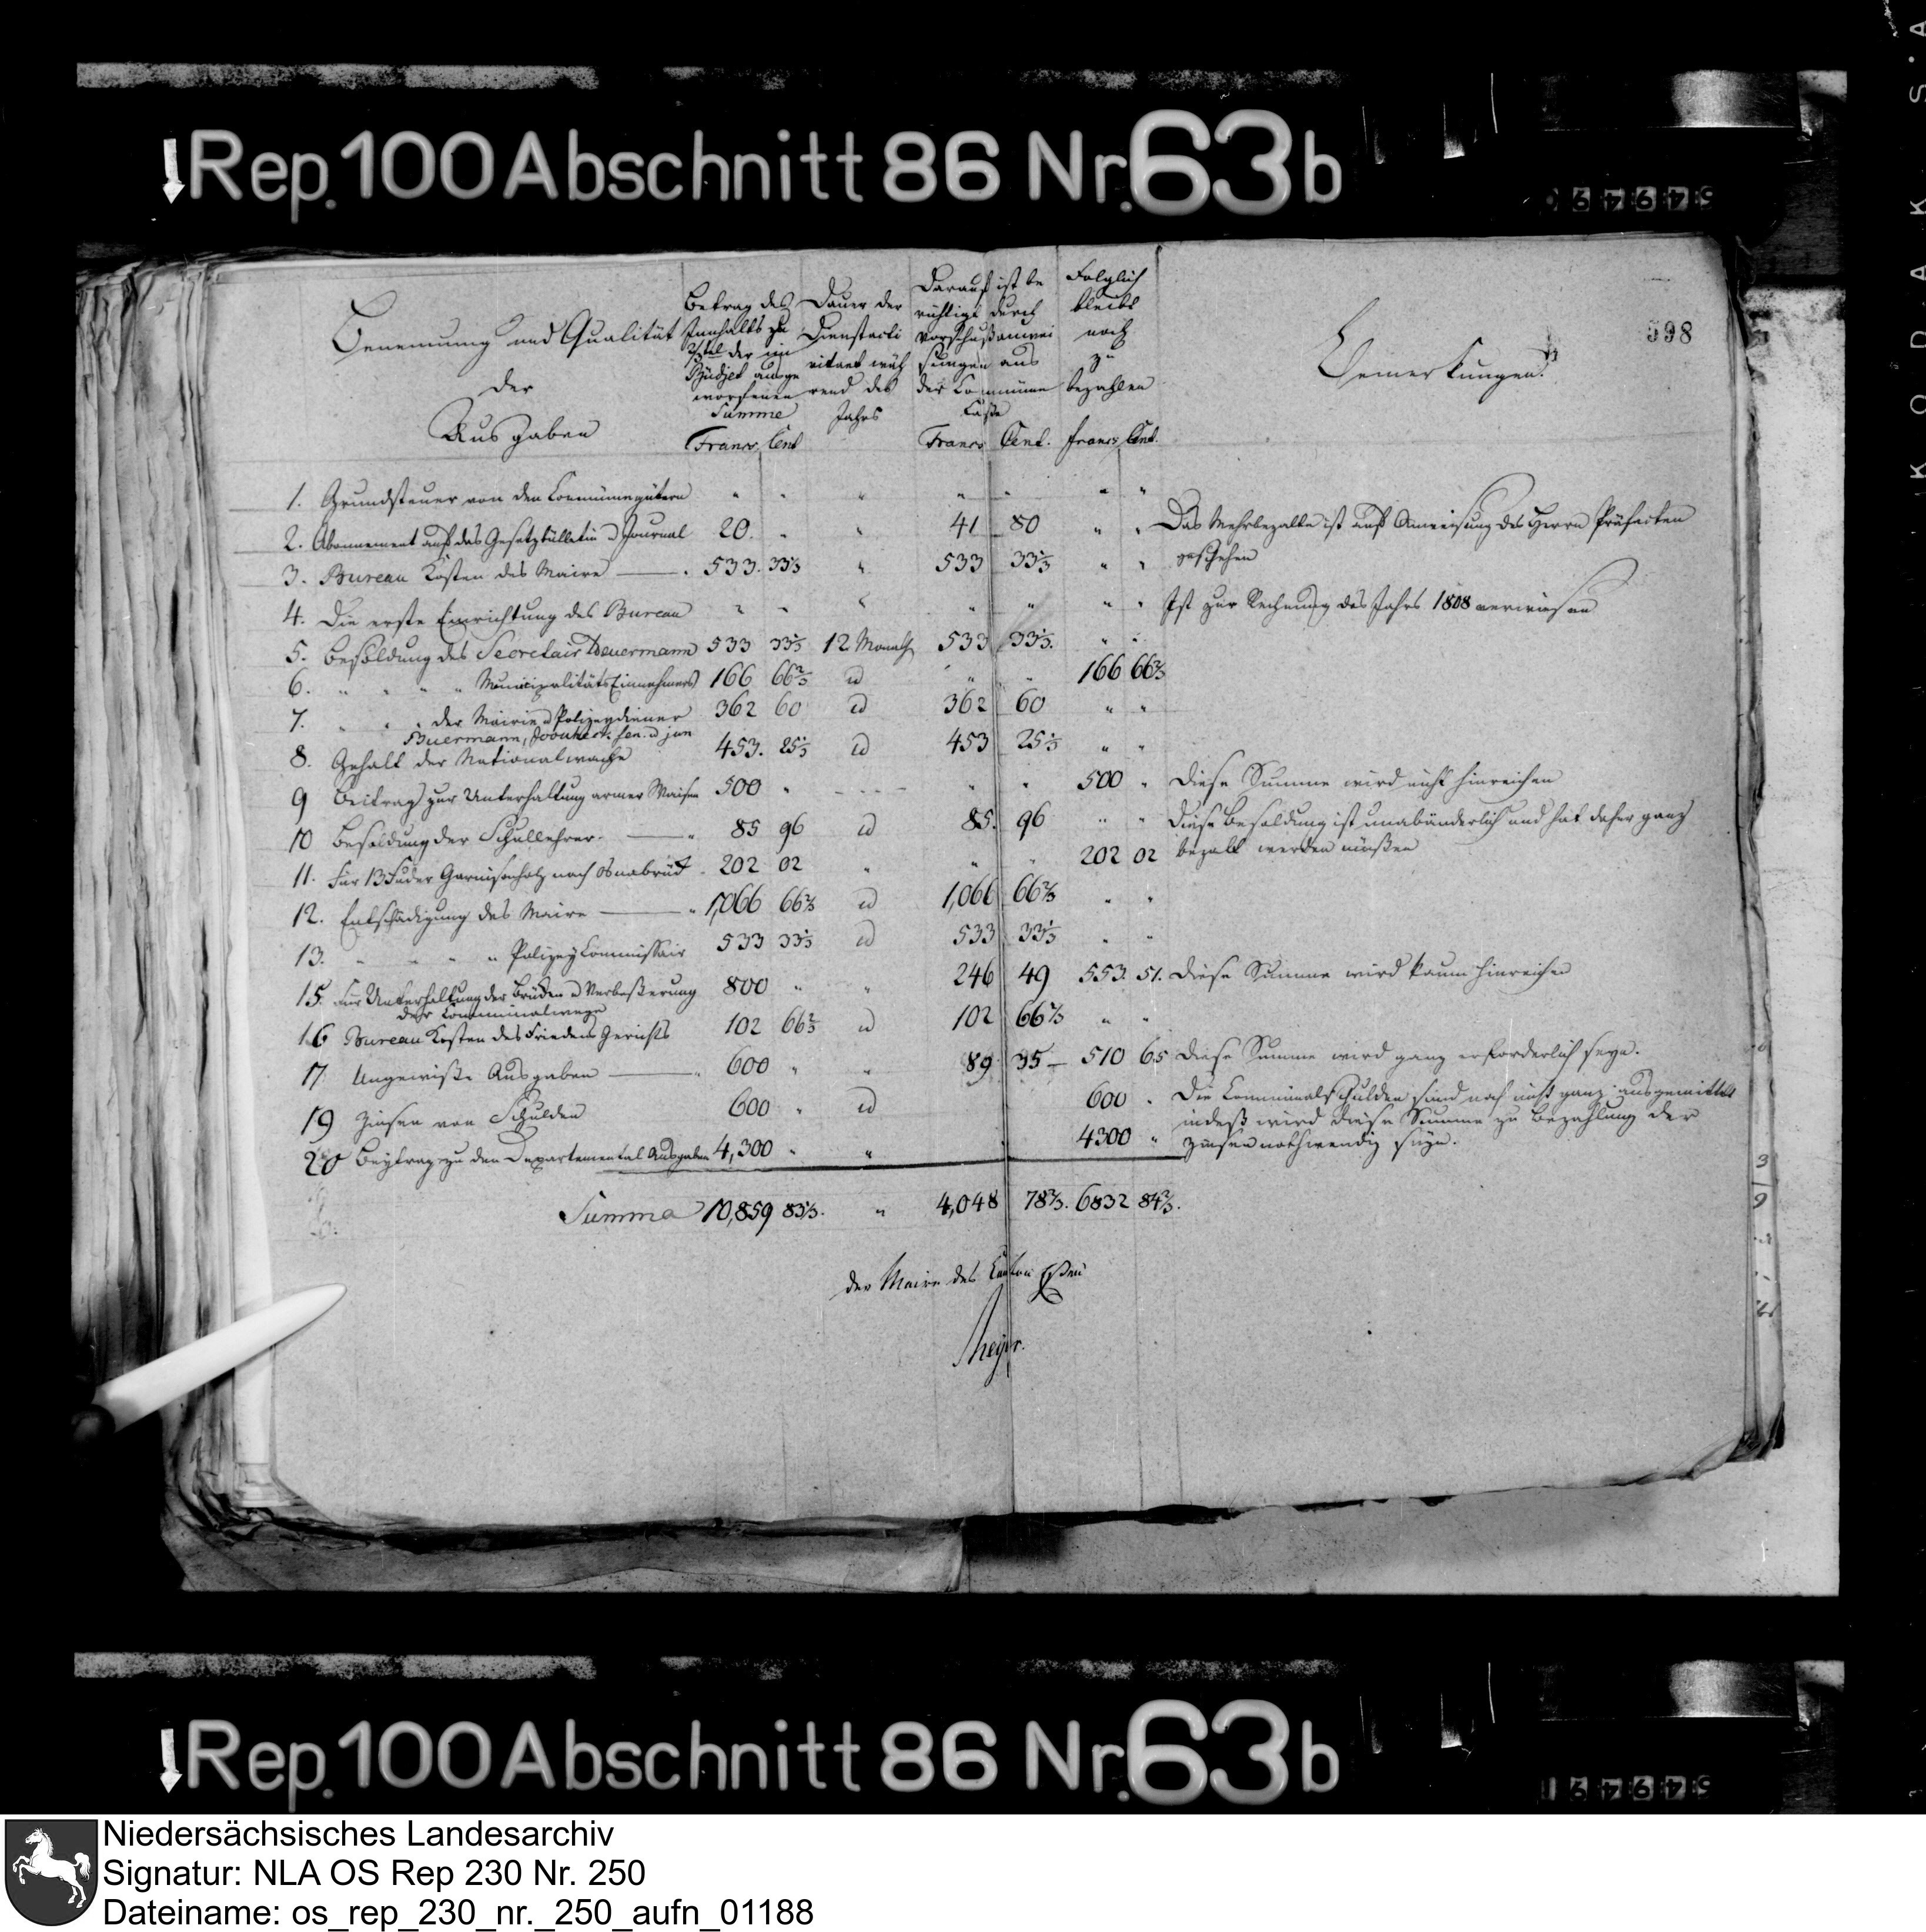 Rep. 100 Abschnitt 86 Nr. 63 b
598
Benennung und Qualität
der
Ausgaben
Betrag des
der im
Büdjet ausge
worfenen
Summe
Francs Cent
Dauer der
Dienstacti
vitaet wäh
rend des
Jahrs
Darauf ist be
richtigt durch
Vorschußanwei
sungen aus
der Commüne
Casse
Francs Cent.
Folglich
bleibt
noch
zu
bezahlen
francs Cent.
Bemerkungen.
1. Grundsteuer von den Commünegütern " " " " " " "
2. Abonnement auf das Gesetzbülletin u Journal 20. " " 41 80 " " Das Mehrbezalte ist auf Anweisung des Herrn Präfecten
geschehen
3. Bureau Kosten des Maire 533. 33⅓ " 533 33⅓ " "
4. Die erste Einrichtung des Bureau " " " " " " " Ist zur Rechnung des Jahrs 1808 verwiesen
5. Besoldung des Secretair Deuermann 533 33⅓ 12 Monath 533 33⅓. " "
6. " " " " Municipalitäts Einnehmers 166 66⅔ id " " 166 66⅔
7. " " " der Mairie u Polizeydiener 362 60 id 362 60 " "
Buermann, sen. u jun
8. Gehalt der Nationalwache 453. 25⅓ id 453 25⅓ " "
9 Beitrag zur Unterhaltung armer Waisen 500 " - - - - " " 500 " Diese Summe wird nicht hinreichen
10 Besoldung der Schullehrer. 85 96 id 85. 96 " " Diese Besoldung ist unabänderlich und hat daher ganz
bezalt werden müßen
11. Für 13 Fuder Garnisonholz nach Osnabrück 202 02 " " " 202 02
12. Entschädigung des Maire 1,066 66⅔ id 1,066 66⅔ " "
13. " " " " Polizey Commissair 533 33⅓ id 533 33⅓ " "
15. Für Unterhaltung der Brücken u Verbeßerung 800 " " 246 49 553. 51. Diese Summe wird kaum hinreichen
der Communalwege
16 Bureau Kosten des Friedens Gerichts 102 66⅔ id 102 66⅔ " "
17. Ungewisse Ausgaben 600 " " 89 35 – 510 65 Diese Summe wird ganz erforderlich seyn.
19 Zinsen von Schulden 600 " id 600 " Die Communalschulden sind noch nicht ganz ausgemittelt
indeß wird diese Summe zu Bezahlung der
Zinsen nothwendig seyn.
20 Beytrag zu den Departemental Ausgaben 4,300 " " 4300 "
Summa 10,859 83⅓. " 4,048 78⅔. 6832 84⅔.
der Maire des Canton Essen
Meyer.
Rep. 100 Abschnitt 86 Nr. 63 b
Niedersächsisches Landesarchiv
Signatur: NLA OS Rep 230 Nr. 250
Dateiname: os_rep_230_nr._250_aufn_01188